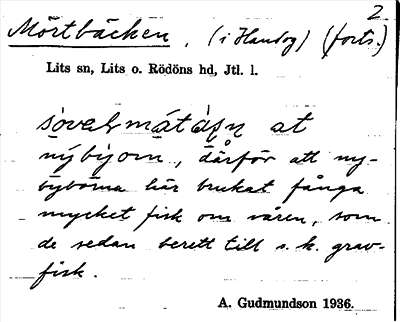 2
Mörtbäcken, (i Handog) (forts.)
Lits sn, Lits o. Rödöns hd, Jtl. l.
at
nýbýom, därför att ny-
byborna här brukat fånga
mycket fisk om våren, som
de sedan berett till s.k. grav-
fisk.
A. Gudmundson 1936.